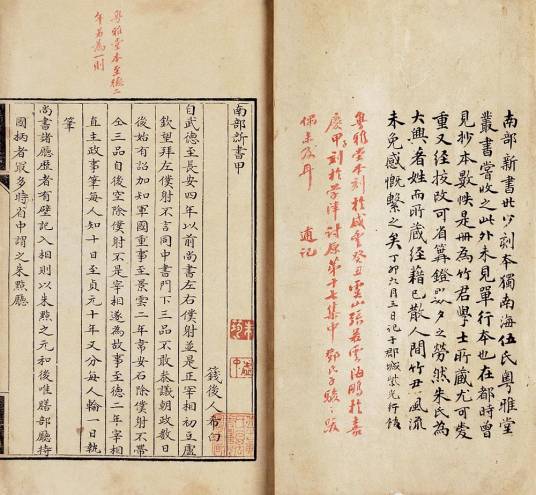 南部新書世少刻本獨南海伍氏粵雅堂
叢書嘗收之此外未見單行本也在都時曾
見抄本數帙是冊為竹君學士所藏尤可爱
重又經校改可省篝鐙夕之勞然朱氏為
大興者姓而所藏經藉已散人間竹君風流
未免感慨繫之矣丁卯六月五日記于郡城
粵雅堂本刻於咸豐癸丑張若雲海鵬於嘉
慶甲子刻於學津討原第十七集中
俱未及耳 逋記
粵雅堂本至德二
年另為一則
南部新書甲
籛後人希白
自武德至長安四年以前尚書左右僕射並是正宰相初豆盧
欽望拜左僕射不言同中書門下三品不敢叅議朝政數日
後始有詔加知軍國重事至景雲二年韋安石除僕射不帶
仝三品自後空除僕射不是宰相遂為故事至德二年宰相
直主政事筆每人知十日至貞元十年又分每人輪一日執
筆
尚書諸廳歷者有壁記入相則以朱點之元和後唯膳部廳持
國柄者最多時省中謂之朱點廳